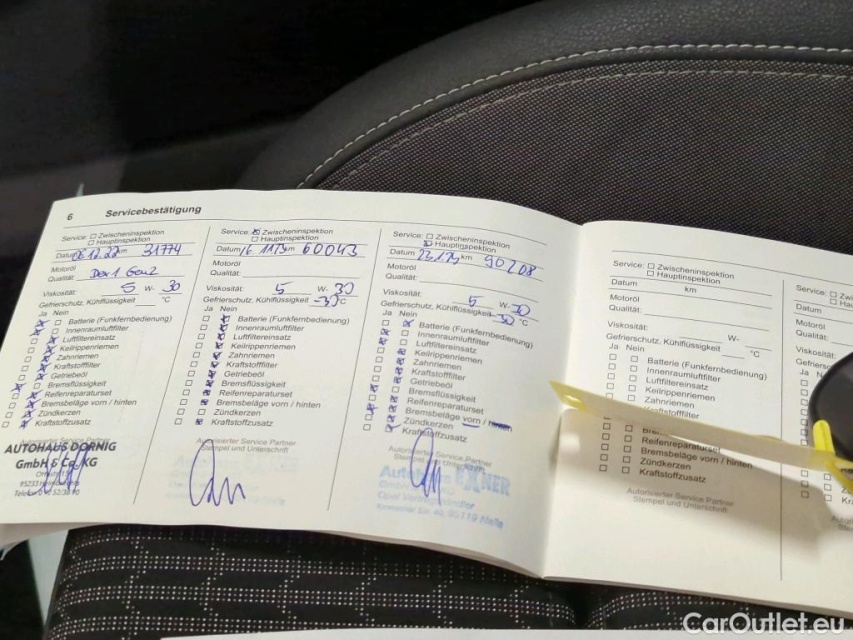 6 Servicebestätigung
Service: Zwischeninspektion
Hauptinspektion
Datum 06.12.22 km 31774
Motoröl
Qualität: Dex 1 Gen2
Viskosität: 5 W- 30
Gefrierschutz, Kühlflüssigkeit °C
Ja Nein
Batterie (Funkfernbedienung)
Innenraumluftfilter
Luftfiltereinsatz
Keilrippenriemen
Zahnriemen
Kraftstofffilter
Getriebeöl
Bremsflüssigkeit
Reifenreparaturset
Bremsbeläge vorn / hinten
Zündkerzen
Kraftstoffzusatz
AUTOHAUS DORNIG
GmbH & Co. KG
Service: Zwischeninspektion
Hauptinspektion
Datum km 60043
Motoröl
Qualität:
Viskosität: 5 W- 30
Gefrierschutz, Kühlflüssigkeit -30 °C
Ja Nein
Batterie (Funkfernbedienung)
Innenraumluftfilter
Luftfiltereinsatz
Keilrippenriemen
Zahnriemen
Kraftstofffilter
Getriebeöl
Bremsflüssigkeit
Reifenreparaturset
Bremsbeläge vorn / hinten
Zündkerzen
Kraftstoffzusatz
Autorisierter Service Partner
Stempel und Unterschrift
Service: Zwischeninspektion
Hauptinspektion
Datum km 90208
Motoröl
Qualität:
Viskosität: 5 W- 30
Gefrierschutz, Kühlflüssigkeit -30 °C
Ja Nein
Batterie (Funkfernbedienung)
Innenraumluftfilter
Luftfiltereinsatz
Keilrippenriemen
Zahnriemen
Kraftstofffilter
Getriebeöl
Bremsflüssigkeit
Reifenreparaturset
Bremsbeläge vorn / hinten
Zündkerzen
Kraftstoffzusatz
Autorisierter Service Partner
Stempel und Unterschrift
EXNER
Service: Zwischeninspektion
Hauptinspektion
Datum km
Motoröl
Qualität:
Viskosität: W-
Gefrierschutz, Kühlflüssigkeit °C
Ja Nein
Batterie (Funkfernbedienung)
Innenraumluftfilter
Luftfiltereinsatz
Keilrippenriemen
Zahnriemen
Kraftstofffilter
Reifenreparaturset
Bremsbeläge vorn / hinten
Zündkerzen
Kraftstoffzusatz
Autorisierter Service Partner
Stempel und Unterschrift
Service:
Datum
Motoröl
Qualität:
Viskosität:
Gefrierschutz
Ja Nein
CarOutlet.eu